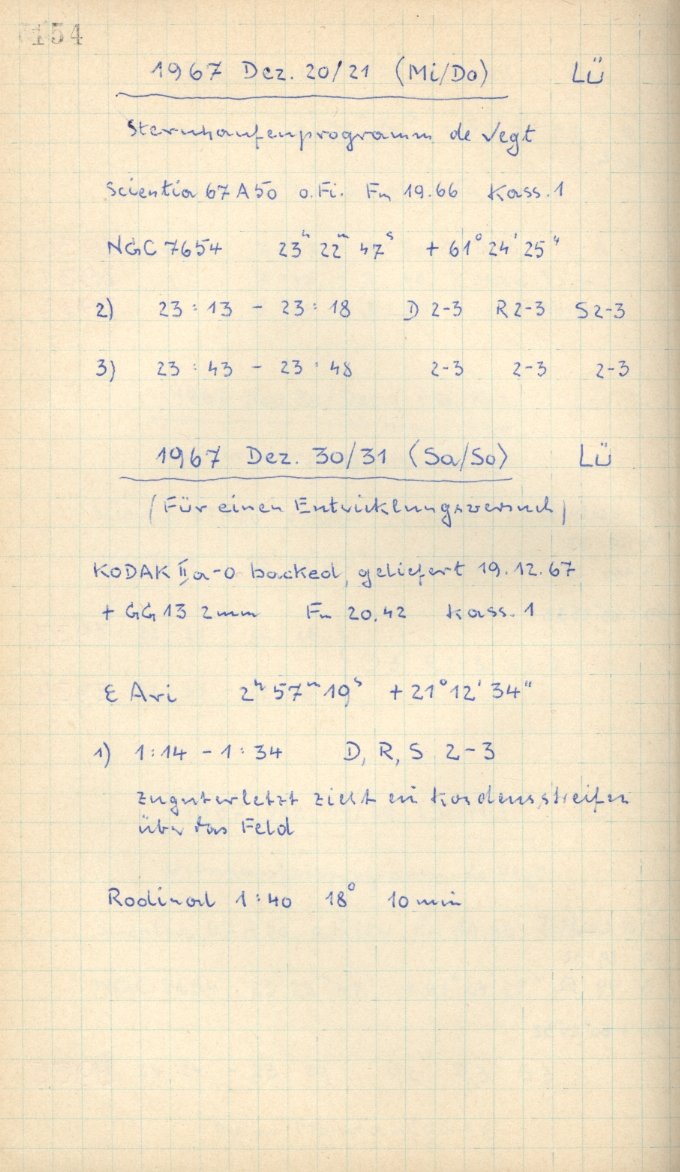 154
1967 Dez. 20/21 (Mi/Do) Lü
Sternhaufenprogramm de Vegt
Scientia 67 A 50 o.Fi. Fn 19.66 Kass. 1
NGC 7654 23h 22m 47s + 61° 24' 25"
2) 23:13 - 23:18 D 2-3 R 2-3 S 2-3
3) 23:43 - 23:48 2-3 2-3 2-3
1967 Dez. 30/31 (Sa/So) Lü
(Für einen Entwicklungsversuch)
KODAK IIa-O backed, geliefert 19.12.67
+ GG 13 2mm Fn 20,42 Kass. 1
ε Ari 2h 57m 19s + 21° 12' 34"
1) 1:14 - 1:34 D, R, S 2-3
Zuguterletzt zieht ein Kondensstreifen
über das Feld
Rodinal 1:40 18° 10 min